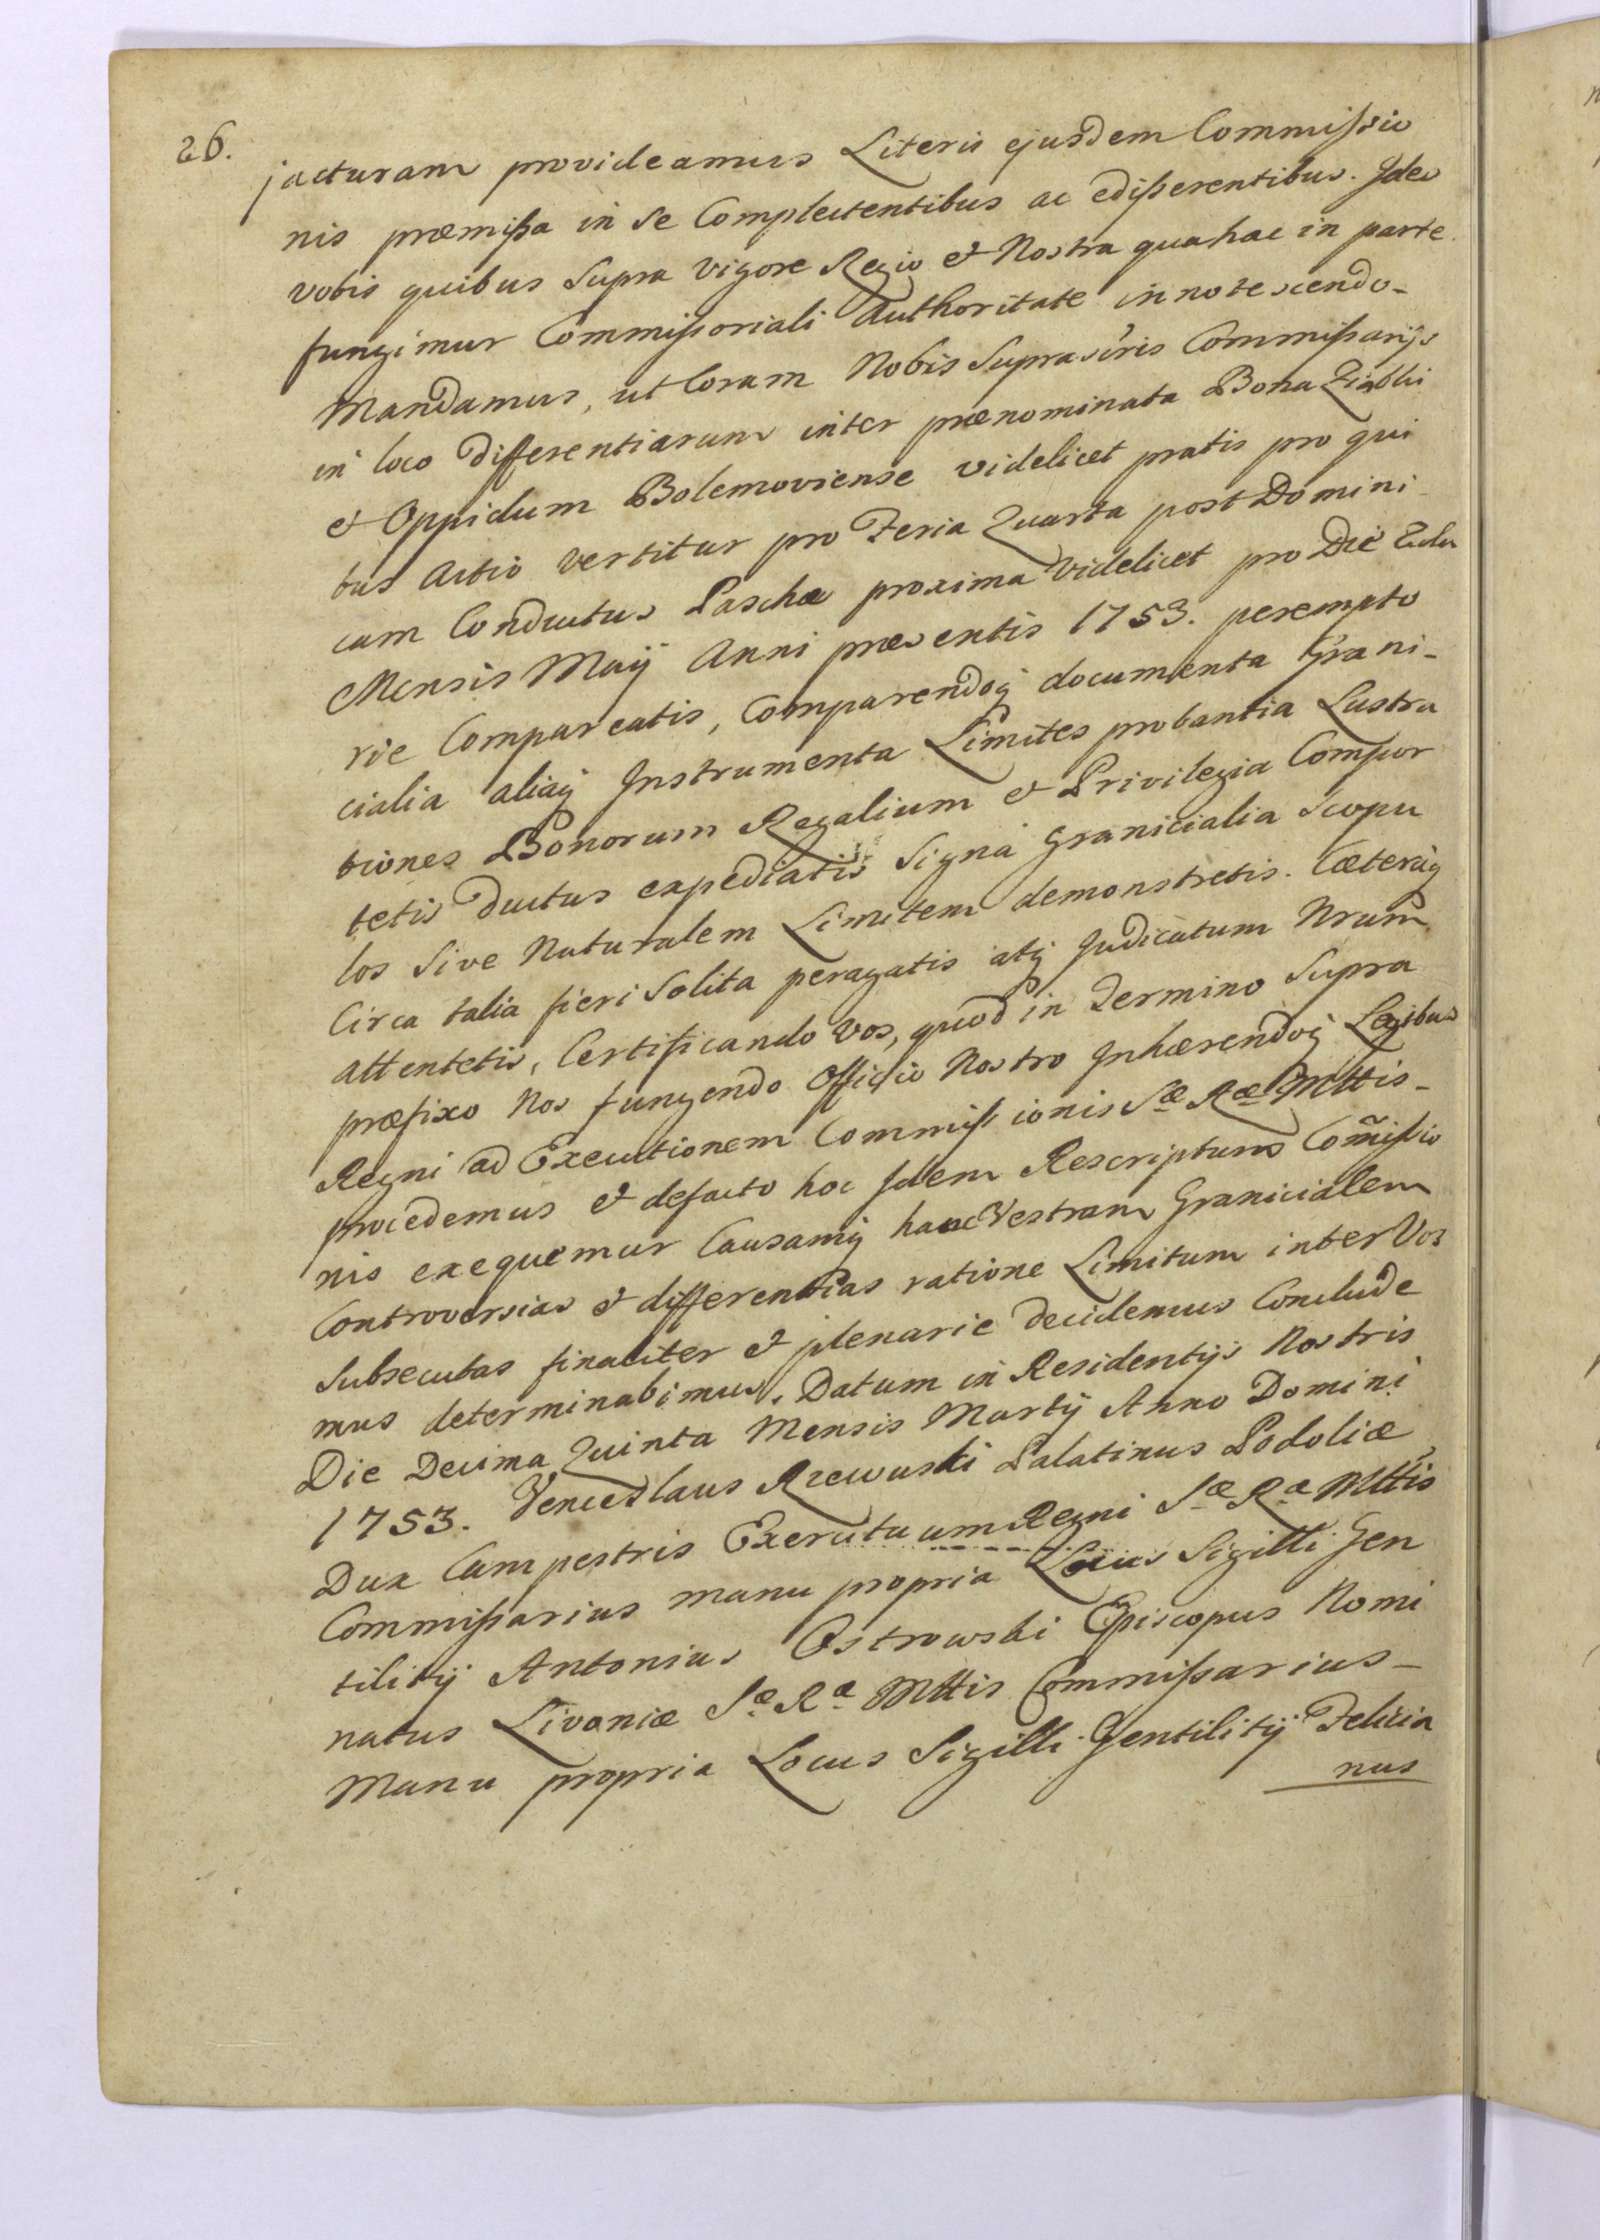 26.
jacturam provideamus Literis ejusdem Commissio
nis præmissa in se Complectentibus ac edisserentibus. Ideo
vobis quibus supra vigore Regio et Nostra qua hac in parte
fungimur Commissoriali Authoritate innotescendo-
Mandamus, ut Coram Nobis Commissarijs
in loco differentiarum inter prænominata Bona
et Oppidum Bolemoviense videlicet pratis pro qui
bus Actio vertitur pro Feria Quarta post Domini-
cam Conductus Paschæ proxima videlicet pro Die
Mensis Maij Anni præsentis 1753. perempto
rie Compareatis, Comparendoq documenta Grani-
cialia aliaq Instrumenta Limites probantia Lustra
tiones Bonorum Regalium et Privilegia Compor
tetis ductus expediatis Signa Granicialia Scopu
los sive Naturalem Limitem demonstretis. Cæteraq
Circa talia fieri Solita peragatis atq Judicatum Nrum
attentetis, Certificando vos, quod in Termino Supra
præfixo Nos fungendo Officio Nostro Inhærendoq Legibus
Regni ad Executionem Commissionis Sæ Ræ Mttis-
procedemus et defacto hoc Idem Rescriptum Com̃issio
nis exequemur Causamq hanc Vestram Granicialem
Controversias et differentias ratione Limitum inter Vos
Subsecutas finaliter et plenarie decidemus Conclude
mus determinabimus. Datum in Residentijs Nostris
Die Decima Quinta Mensis Martij Anno Domini
1753. Venceslaus Rzewuski Palatinus Podoliæ
Dux Campestris Exercituum Regni Sæ Ræ Mttis
Commissarius manu propria Locus Sigilli Gen
tilitij Antonius Ostrowski Episcopus Nomi
natus Livoniæ Sæ Ræ Mttis Commissarius-
Manu propria Locus Sigilli Gentilitij Felicia
nus